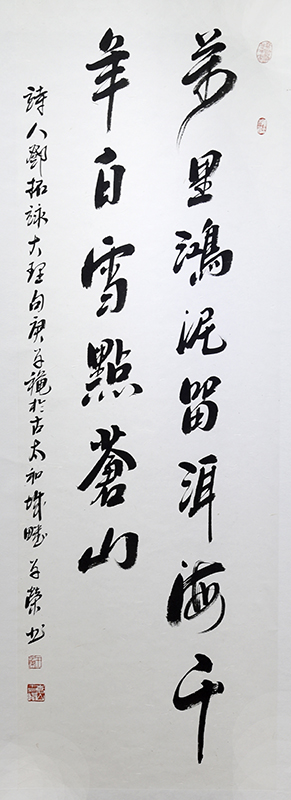 萬里鴻泥留洱海千
年白雪點蒼山
詩人鄧拓詠大理句庚子穐於古太和城畔子榮书